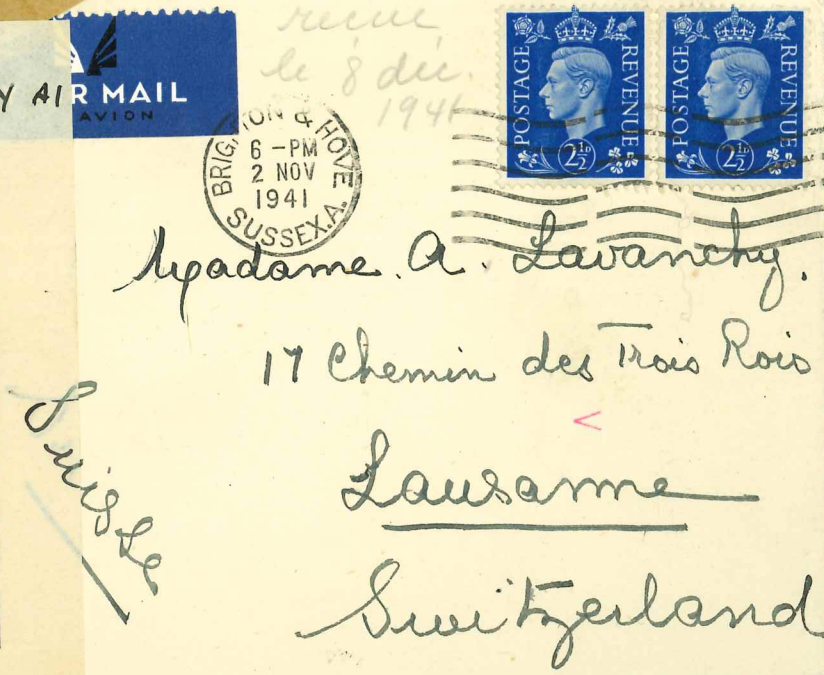 reçue
le 8 déc.
1941
Y AIR MAIL
AVION
BRIGHTON & HOVE
6 - PM
2 NOV
1941
SUSSEX.A.
POSTAGE REVENUE
2½D
POSTAGE REVENUE
2½D
Madame. A. Lavanchy.
17 Chemin des Trois Rois
<
Lausanne
Switzerland
Suisse